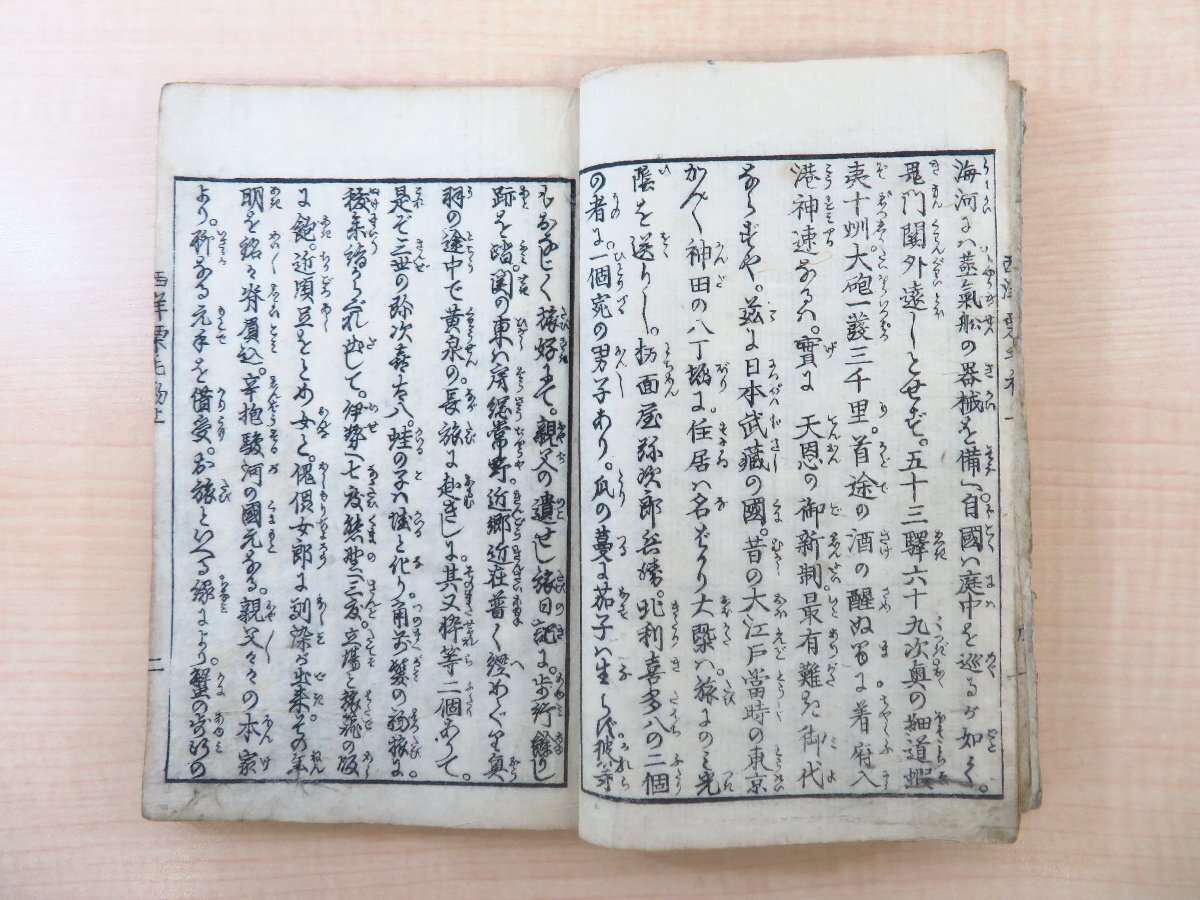 海河には蒸氣船の器械を備へ。自國は庭中を巡るが如く。
鬼門關外遠しとせず。五十三驛六十九次奥の細道蝦
夷十州。大砲一發三千里。首途の酒の醒ぬ間に着府入
港神速なるハ。實に 天恩の御新制最有難き御代
ならずや。茲に日本武藏の國。昔の大江戸當時の東京
神田の八丁堀に。住居ハ名ばかり大槩ハ。旅にのミ光
陰を送りし。栃面屋弥次郎兵衛。北利喜多八の二個
の者に。一個宛の男子あり。瓜の蔓に茄子ハ生らず彼等
もおなじく旅好にて。親父の遺せし旅日記に。歩行餘りし
跡を踏。関の東ハ房総常野。近郷近在普く經めぐり奥
羽の途中で黄泉の長旅に赴きしに其又粹等二個ありて。
是ぞ三世の弥次喜多八。蛙の子ハ蛙と化り。角前髪の
稜参詣から。伊勢へ七度熊野へ三度。立場と旅篭の飯
に飽。近頃足をとめ女と。傀儡女郎に列染が出来。その年
明を銘々脊屓込。辛抱駿河の國元なる。親父々々の本家
より。聊なる元手を借受。お旅といへる縁により。蟹の穴の